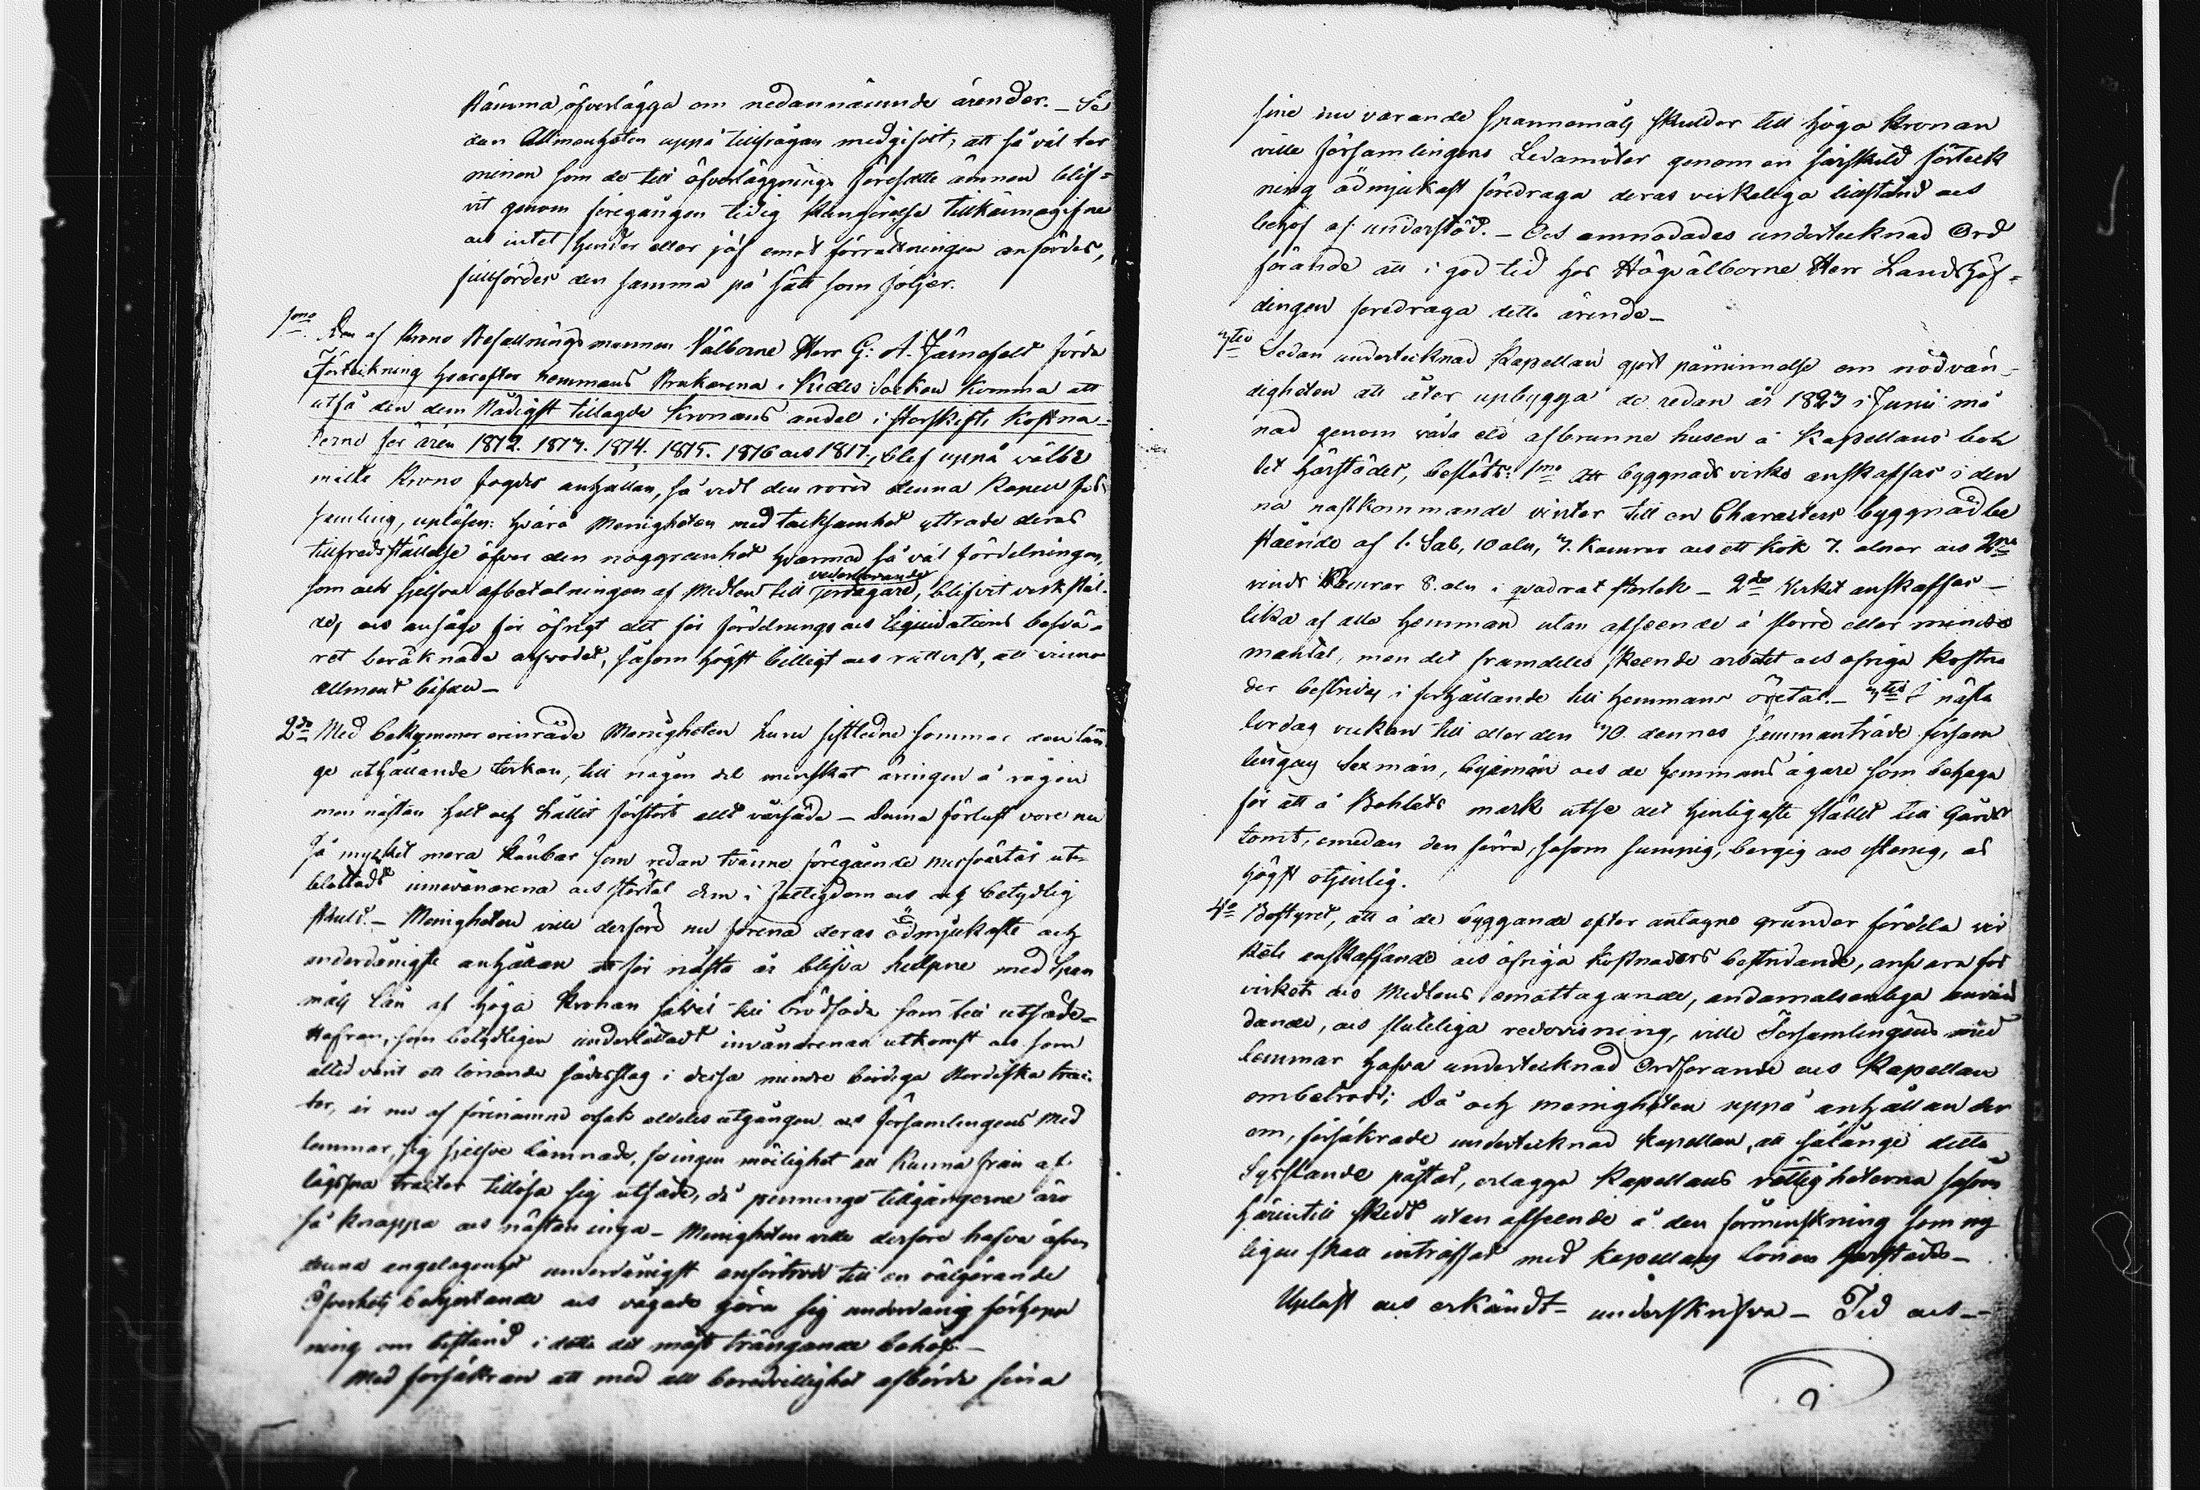 stämma öfverlägga om nedannämnde ärender. – Se
dan Allmenheten uppå tillfrågan medgifvit, att så väl ter
minen som de till öfverläggnings föreslete ämnen blif=
vit genom föregången tidig kungörelse tillkännagifne
och intet hinder eller jäf emot förrättningen anfördes,
fullfördes den samma på sätt som följer.
1mo. Den af Krono Befallningsmannen Välborne Herr G: A. Järnefelt förda
Förteckning hvarefter hemmans Brukarena i Kides Socken komma att
utfå den dem Nådigst tillagde Kronans andel i storskifts kostna=
derne för åren 1812. 1813. 1814. 1815. 1816 och 1817, blef uppå välbe
mälte Krono fogdes anhållan, så vidt den rörde denna Kapell För
samling, uplesen: hvarå Menigheten med tacksamhet yttrade deras
tillfredsställelse öfver den noggranhet hvarmed så väl fördelningen,
som ock sjelfva afbetalningen af Medlen till vederbörande jordägare, blifvit verkstäl=
de, och ansågo för öfrigt det för fördelnings och liquidations besvä=
ret beräknade arfvodet, såsom högst billigt och rättvist, att vinna
allment bifall –
2do Med bekymmer erinrade Menigheten huru sistledne sommar den län
ge uthållande torkan, till någon del minskat äringen å rågen
men nästan helt och hållit förstört allt vårsäde – Denna förlust vore nu
så mycket mera känbar som redan tvänne föregående missväxtår ut-
blottadt innevånarena och störtat dem i fattigdom och ock betydlig
skuld. – Menigheten ville derföre nu förena deras ödmjukaste och
underdånigste anhållan att för nästa år blifva hulpne med span
måls lån af höga Kronan såväl till brödföda som till utsäde=
Hafran, som betydligen underlättadt invånarenas utkomst och som
altid varit ett lönande sädesslag i dessa mindre bördiga Nordiska trac-
ter, är nu af förenämnd orsak aldeles utgången och Församlingens Med
lemmar, sig sjelfve lämnade, få ingen möjlighet att kunna från af
lägsna tracter tillösa sig utsäde, då pennings tillgångerne äro
så knappa och nästan inga – Menigheten ville derföre hafva öfver
denna angelägenhet underdånigst anförtrodt till en välgörande
Öfverhets behjertande och vågade göra sig underdånig förhopp
ning om bistånd i detta det mäst trängande behof –
Med försäkran att med all beredvillighet afbörda sina
sine nu varande spannemåls skulder till höga Kronan
ville Församlingens Ledamöter genom en särskild förteck
ning ödmjukast föredraga deras verkeliga tillstånd och
behof af understöd. – Och anmodades undertecknad Ord
förande att i god tid hos Högvälborne Herr Landshöf=
dingen föredraga detta ärende –
3tio Sedan undertecknad Kapellan gjort påminnelse om nödvän=
digheten att åter upbygga de redan år 1823 i Junii må
nad genom våda eld afbrunne husen å Kapellans bohl
det härstädes, beslöts: 1mo Att byggnads virke anskaffas i den
na nästkommande vinter till en Characters byggnad be
stående af 1. Sal, 10 aln, 3. Kamrar och ett Kök 7. alnar och 2ne
vinds Kamrar 8. aln i qvadrat storlek – 2do Virket anskaffas –
lika af alla hemman utan afseende å större eller mindre
mantal, men det framdeles skeende arbetet och öfriga kostna
der bestrides i förhållande till hemmans öretal. – 3tio I nästa
lördag veckan till eller den 30 dennes sammanträde försam
lingens Sexmän, byemän och de hemmans ägare som behaga
för att å Bohlets mark utse det tjenligaste stället till Gårds
tomt, emedan den förra, såsom sumpig, bergig och stenig, är
högst otjenlig.
4o Bestyret, att å de byggande efter antagne grunder fördela vir
kets anskaffande och öfriga kostnaders bestridande, ansvara för
virkets och Medlens emottagande, ändamålsenliga använ
dande, och slutliga redovisning, ville Församlingens med
lemmar hafva undertecknad Ordförande och Kapellan
ombetrodt; Då och menigheten uppå anhållan der
om, försäkrade undertecknad Kapellan, att sålänge detta
Sysslande påstår, erlägga Kapellans rättigheterna såsom
härintill skedt utan afseende å den förminskning som my
ligen skall inträffat med Kapellans lönen härstädes –
Upläst och erkändt= underskrifva – Tid och –